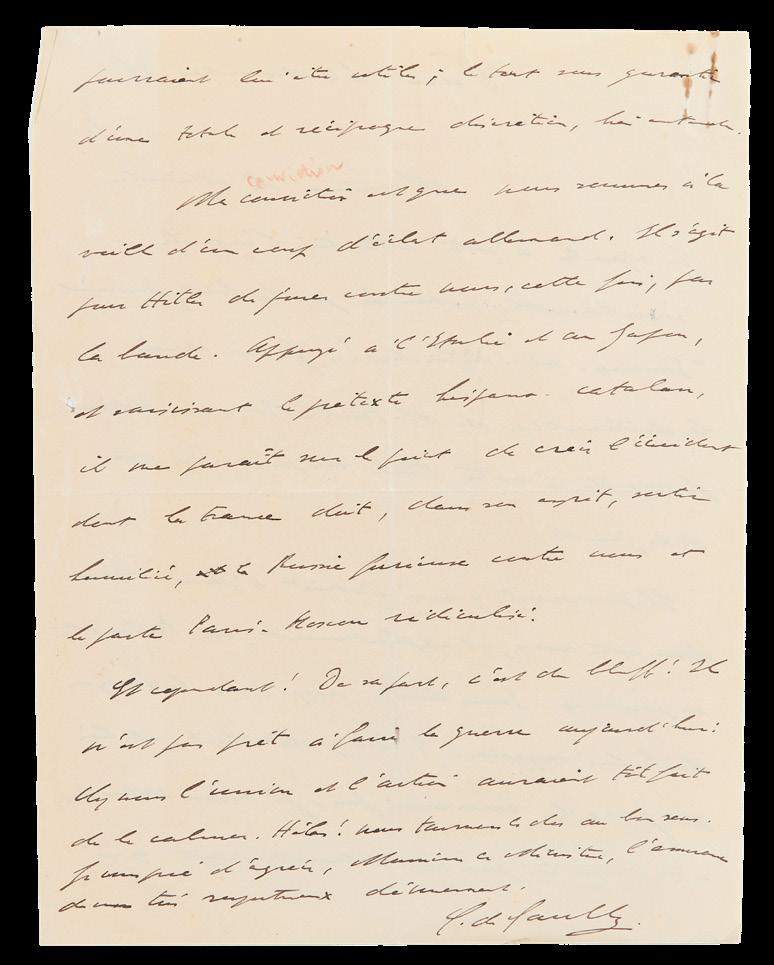 pourraient lui être utiles ; le tout sous garantie
d'une totale et réciproque discrétion, bien entendu.
conviction
Ma conviction est que nous sommes à la
veille d'un coup d'éclat allemand. Il s'agit
pour Hitler de jouer contre nous, cette fois, par
la bande. Appuyé à l'Italie et au Japon,
et saisissant le prétexte hispano-catalan,
il me paraît sur le point de créer l'incident
dont la France doit, dans son esprit, sortir
humiliée, la Russie furieuse contre nous et
le pacte Paris-Moscou ridiculisé.
Et cependant ! De sa part, c'est du bluff ! Il
n'est pas prêt à faire la guerre aujourd'hui.
chez nous l'union et l'action auraient tôt fait
de le calmer. Hélas ! nous tournons le dos au bon sens.
d'agréer, Monsieur le Ministre, l'assurance
de mon très respectueux dévouement.
C. de Gaulle.